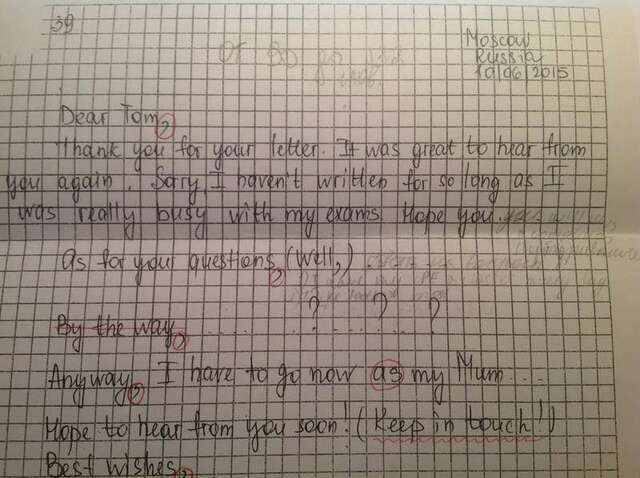 39
Moscow
Russia
10/06/2015
от 90 до
Dear Tom,
Thank you for your letter. It was great to hear from
you again. Sorry I haven't written for so long as I
was really busy with my exams. Hope you
As for your questions, (Well,) ...
? ? ?
By the way, ..............
Anyway, I have to go now as my Mum ...
Hope to hear from you soon! (Keep in touch!)
Best wishes,